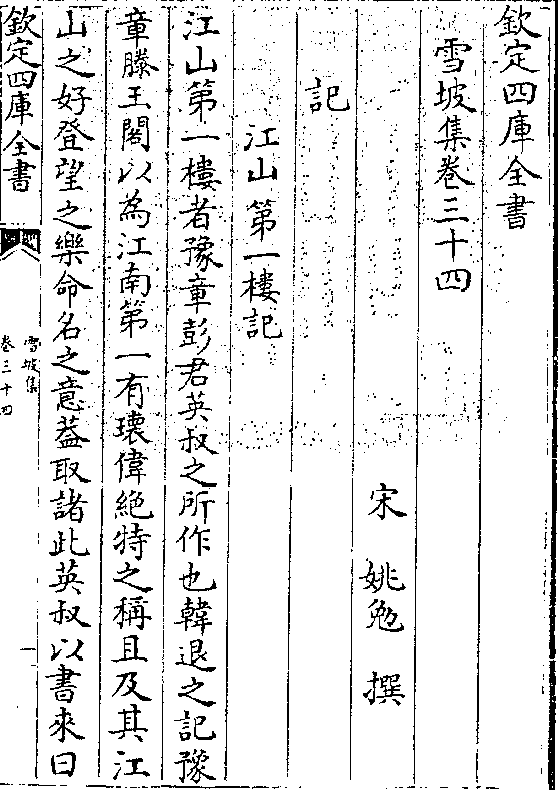 欽定四庫全書
雪坡集卷三十四
宋　姚勉　撰
記
江山第一樓記
江山第一樓者豫章彭君英叔之所作也韓退之記豫
章滕王閣以為江南第一有瓌偉絶特之稱且及其江
山之好登望之樂命名之意葢取諸此英叔以書來曰
欽定四庫全書
雪坡集
卷三十四
一